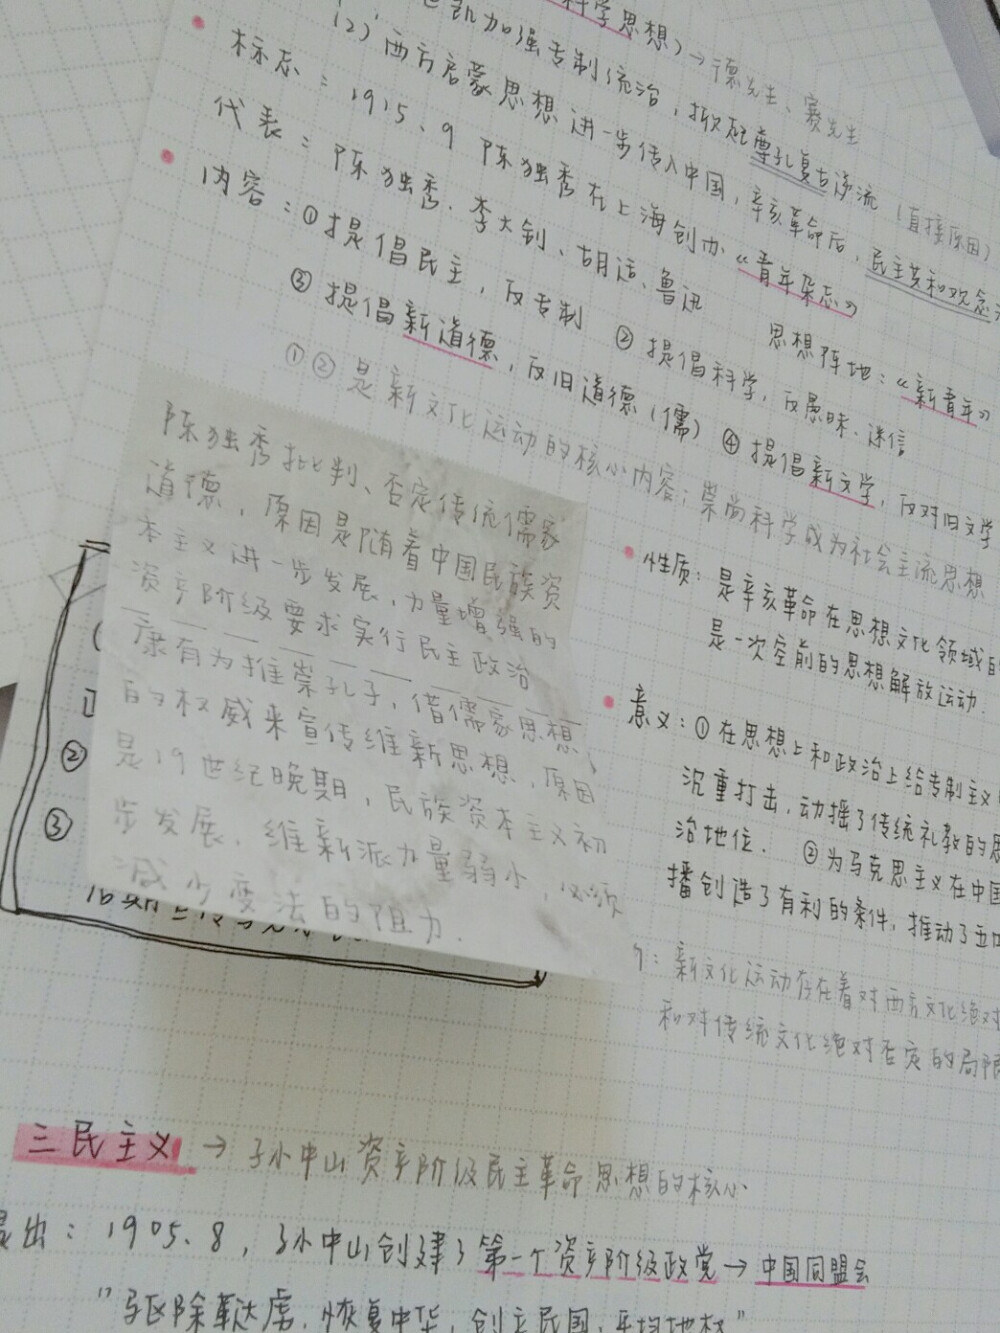 科学思想）→德先生、赛先生
凯加强专制统治，掀起尊孔复古逆流（直接原因）
（2）西方启蒙思想进一步传入中国，辛亥革命后，民主共和观念
标志：1915.9 陈独秀在上海创办《青年杂志》
代表：陈独秀、李大钊、胡适、鲁迅 思想阵地：《新青年》
内容：①提倡民主，反专制 ②提倡科学，反愚昧、迷信
③提倡新道德，反旧道德（儒）④提倡新文学，反对旧文学
①②是新文化运动的核心内容；崇尚科学成为社会主流思想
陈独秀批判、否定传统儒家
道德，原因是随着中国民族资
本主义进一步发展，力量增强的
资产阶级要求实行民主政治
康有为推崇孔子，借儒家思想
的权威来宣传维新思想，原因
是19世纪晚期，民族资本主义初
步发展，维新派力量弱小，必须
减少变法的阻力.
②
③
性质：是辛亥革命在思想文化领域的
是一次空前的思想解放运动.
意义：①在思想上和政治上给专制主义
沉重打击，动摇了传统礼教的思
治地位. ②为马克思主义在中国
播创造了有利的条件，推动了五
：新文化运动存在着对西方文化绝对
和对传统文化绝对否定的局限
三民主义→孙中山资产阶级民主革命思想的核心
提出：1905.8，孙中山创建了第一个资产阶级政党→中国同盟会
"驱除鞑虏，恢复中华，创立民国，平均地权"